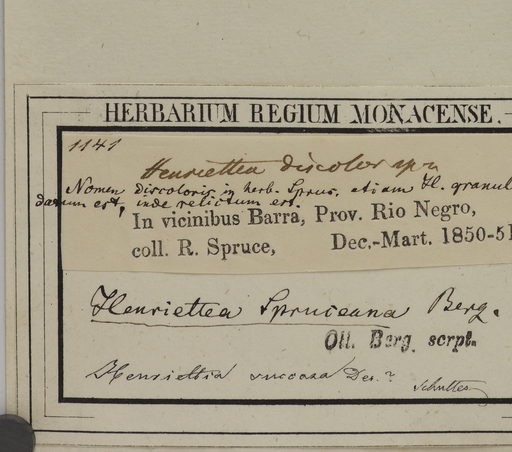 HERBARIUM REGIUM MONACENSE.
1141
Henriettea discolor sp n
Nomen discoloris in herb. Sprus. etiam H. granul
datum est, inde relictum est.
In vicinibus Barra, Prov. Rio Negro,
coll. R. Spruce, Dec.-Mart. 1850-51
Henriettea Spruceana Berg.
Ott. Berg. scrpt.
Henriettia succosa Des.?